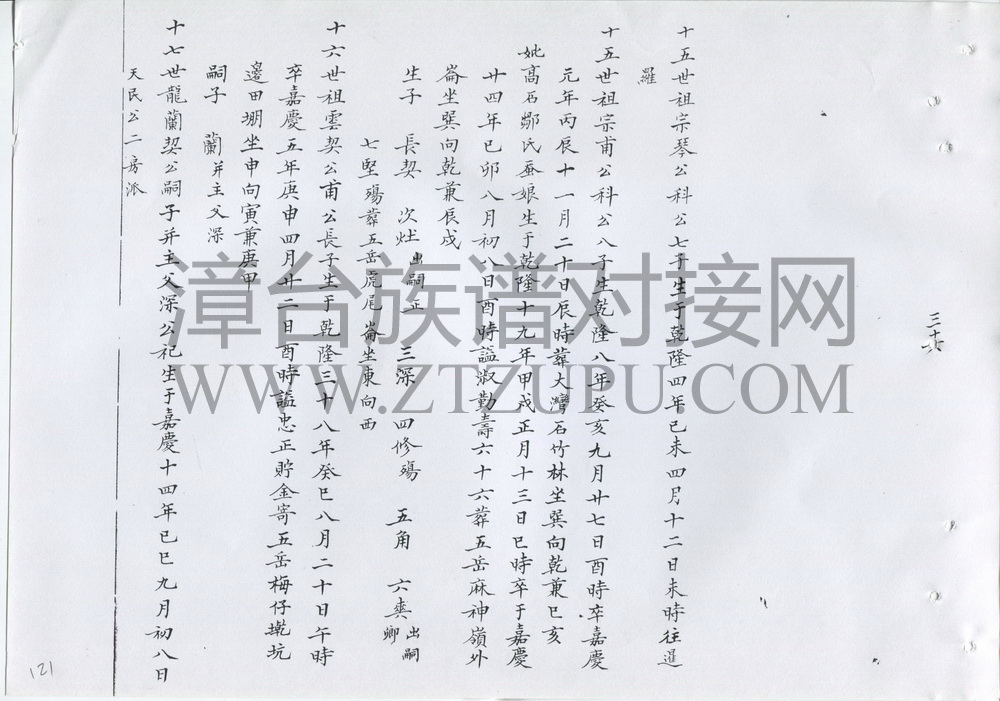 三十六
十五世祖宗琴公科公七子生于乾隆四年己未四月十二日未時往暹
羅
十五世祖宗甫公科公八子生乾隆八年癸亥九月廿七日酉時卒嘉慶
元年丙辰十一月二十日辰時葬大灣石竹林坐巽向乾兼巳亥
妣高石鄒氏蚕娘生于乾隆十九年甲戌正月十三日巳時卒于嘉慶
廿四年己卯八月初八日酉時謚淑勤壽六十六葬五岳麻神嶺外
崙坐巽向乾兼辰戌
生子 長契 次灶出嗣 三深 四修殤 五角 六爽出嗣卿
七堅殤葬五岳虎尾崙坐東向西
十六世祖雲契公甫公長子生于乾隆三十八年癸巳八月二十日午時
卒嘉慶五年庚申四月廿二日酉時謚忠正貯金寄五岳梅仔墘坑
邊田堋坐申向寅兼庚甲
嗣子 蘭并主父深
十七世龍蘭契公嗣子并主父深公祀生于嘉慶十四年己巳九月初八日
天民公二房派
121
漳台族谱对接网
WWW.ZTZUPU.COM